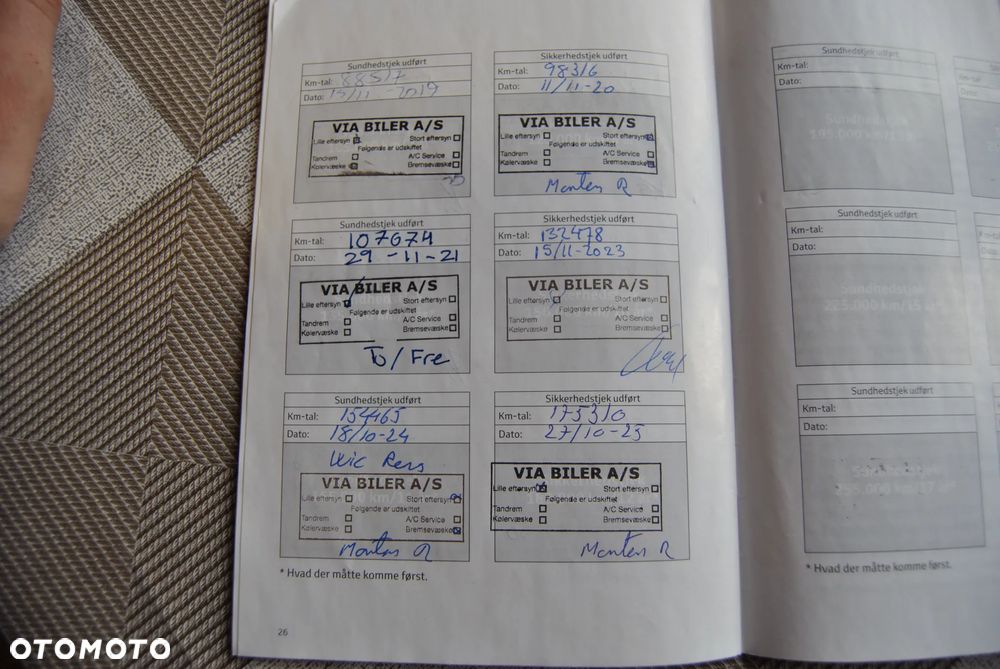 Sundhedstjek udført
Km-tal: 88517
Dato: 15/11-2019
VIA BILER A/S
Lille eftersyn Stort eftersyn
Følgende er udskiftet
Tandrem A/C Service
Kølervæske Bremsevæske
Sikkerhedstjek udført
Km-tal: 98316
Dato: 11/11-20
VIA BILER A/S
Lille eftersyn Stort eftersyn
Følgende er udskiftet
Tandrem A/C Service
Kølervæske Bremsevæske
Morten R
Sundhedstjek udført
Km-tal: 107674
Dato: 29-11-21
VIA BILER A/S
Lille eftersyn Stort eftersyn
Følgende er udskiftet
Tandrem A/C Service
Kølervæske Bremsevæske
To/Fre
Sikkerhedstjek udført
Km-tal: 132478
Dato: 15/11-2023
VIA BILER A/S
Lille eftersyn Stort eftersyn
Følgende er udskiftet
Tandrem A/C Service
Kølervæske Bremsevæske
Sundhedstjek udført
Km-tal: 154465
Dato: 18/10-24
VIA BILER A/S
Lille eftersyn Stort eftersyn
Følgende er udskiftet
Tandrem A/C Service
Kølervæske Bremsevæske
Morten R
Sikkerhedstjek udført
Km-tal: 175310
Dato: 27/10-25
VIA BILER A/S
Lille eftersyn Stort eftersyn
Følgende er udskiftet
Tandrem A/C Service
Kølervæske Bremsevæske
Morten R
* Hvad der måtte komme først.
26
Sundhedstjek udført
Km-tal:
Dato:
Sundhedstjek
195.000 km/13
Sundhedstjek udført
Km-tal:
Dato:
Sundhedstjek
225.000 km/15
Sundhedstjek udført
Km-tal:
Dato:
Sundhedstjek
255.000 km/17
* Hvad der måtte komme først.
OTOMOTO